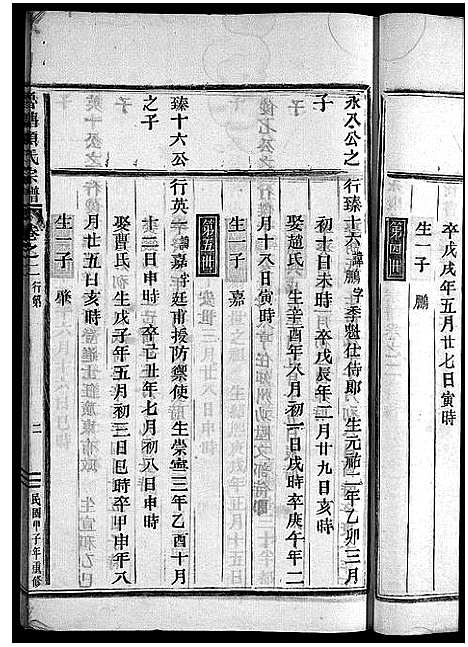 卒戊戌年五月廿七日寅時
生一子 鵬
第四世
永八公之子
行臻十六 諱鵬 字季魁仕侍郎 生元祐二年乙卯三月
初十日未時 卒戊辰年二月廿九日亥時
娶趙氏 生辛酉年八月初一日戌時 卒庚午年二
月十八日寅時
生一子 嘉
第五世
臻十六公之子
行英一 諱嘉 字廷甫援防禦使 生崇寧三年乙酉十月
十三日申時 卒己丑年七月初八日申時
娶曹氏 生戊子年五月初三日巳時 卒甲申年八
月廿五日亥時
生一子
氏宗譜 卷之二 行第 二 民國甲子年重修